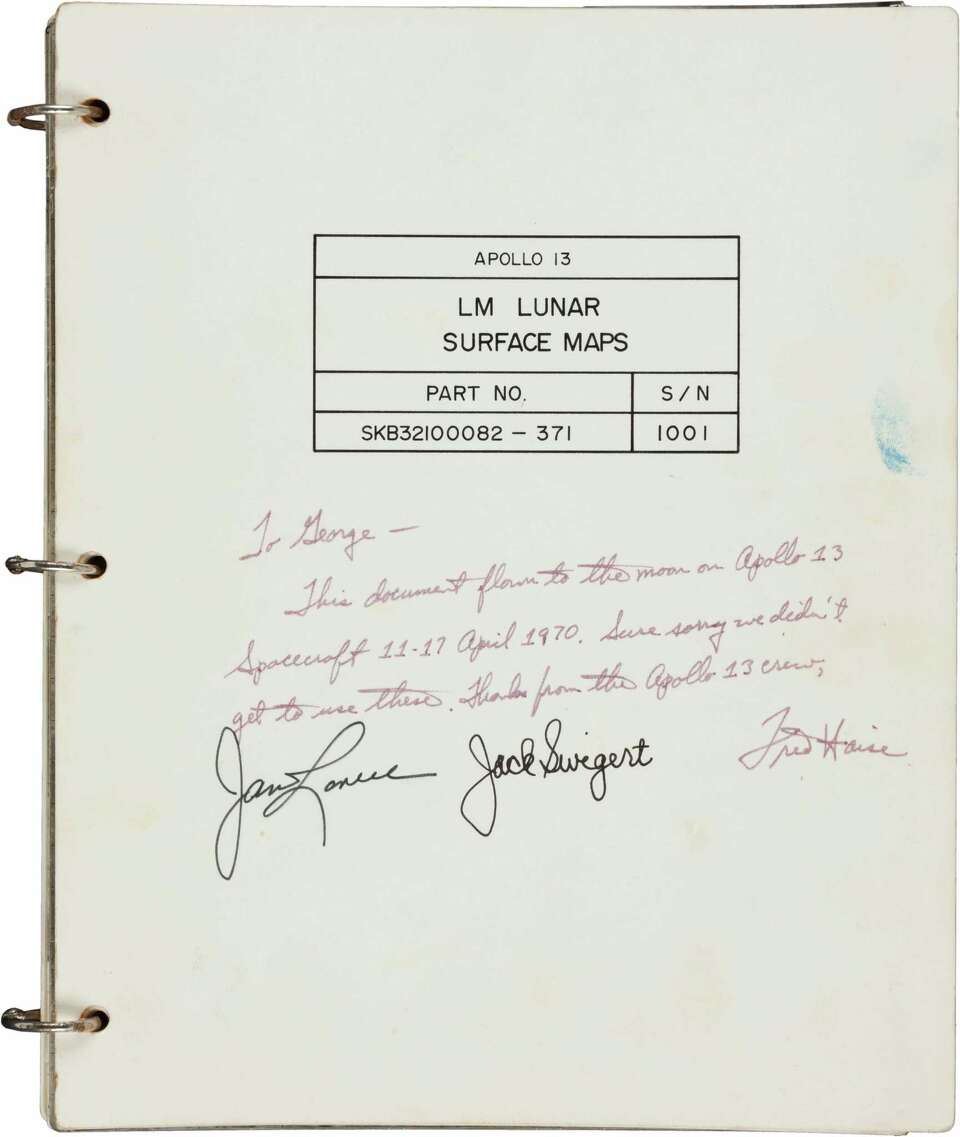 APOLLO 13
LM LUNAR
SURFACE MAPS
PART NO. S/N
SKB32100082 - 371 1001
To George —
This document flown to the moon on Apollo 13
Spacecraft 11-17 April 1970. Sure sorry we didn't
get to use these. Thanks from the Apollo 13 crew,
James Lovell Jack Swigert Fred Haise